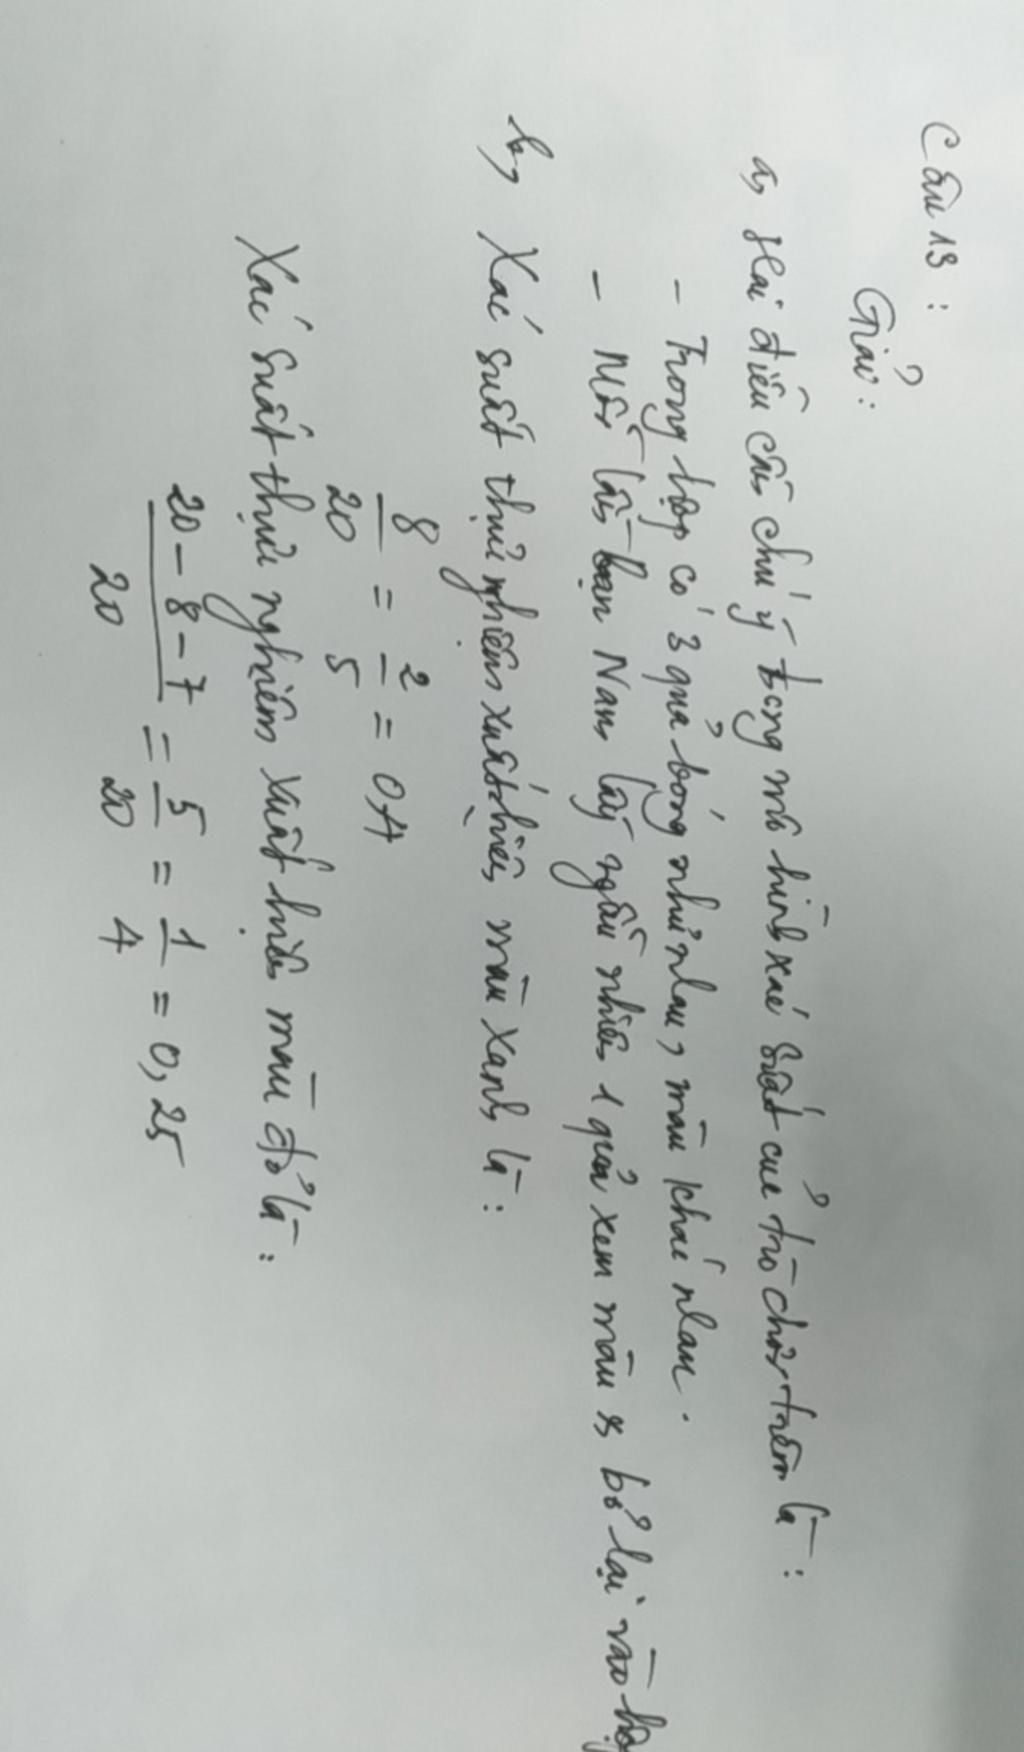 Câu 13 :
Giải :
a, Hai điều cần chú ý trong mô hình xác suất của trò chơi trên là :
- Trong hộp có 3 quả bóng như nhau, màu khác nhau.
- Mỗi lần bạn Nam lấy ngẫu nhiên 1 quả xem màu bỏ lại vào
b, Xác suất thực nghiệm xuất hiện màu xanh là :
8/20 = 2/5 = 0,4
Xác suất thực nghiệm xuất hiện màu đỏ là :
20-8-7/20 = 5/20 = 1/4 = 0,25